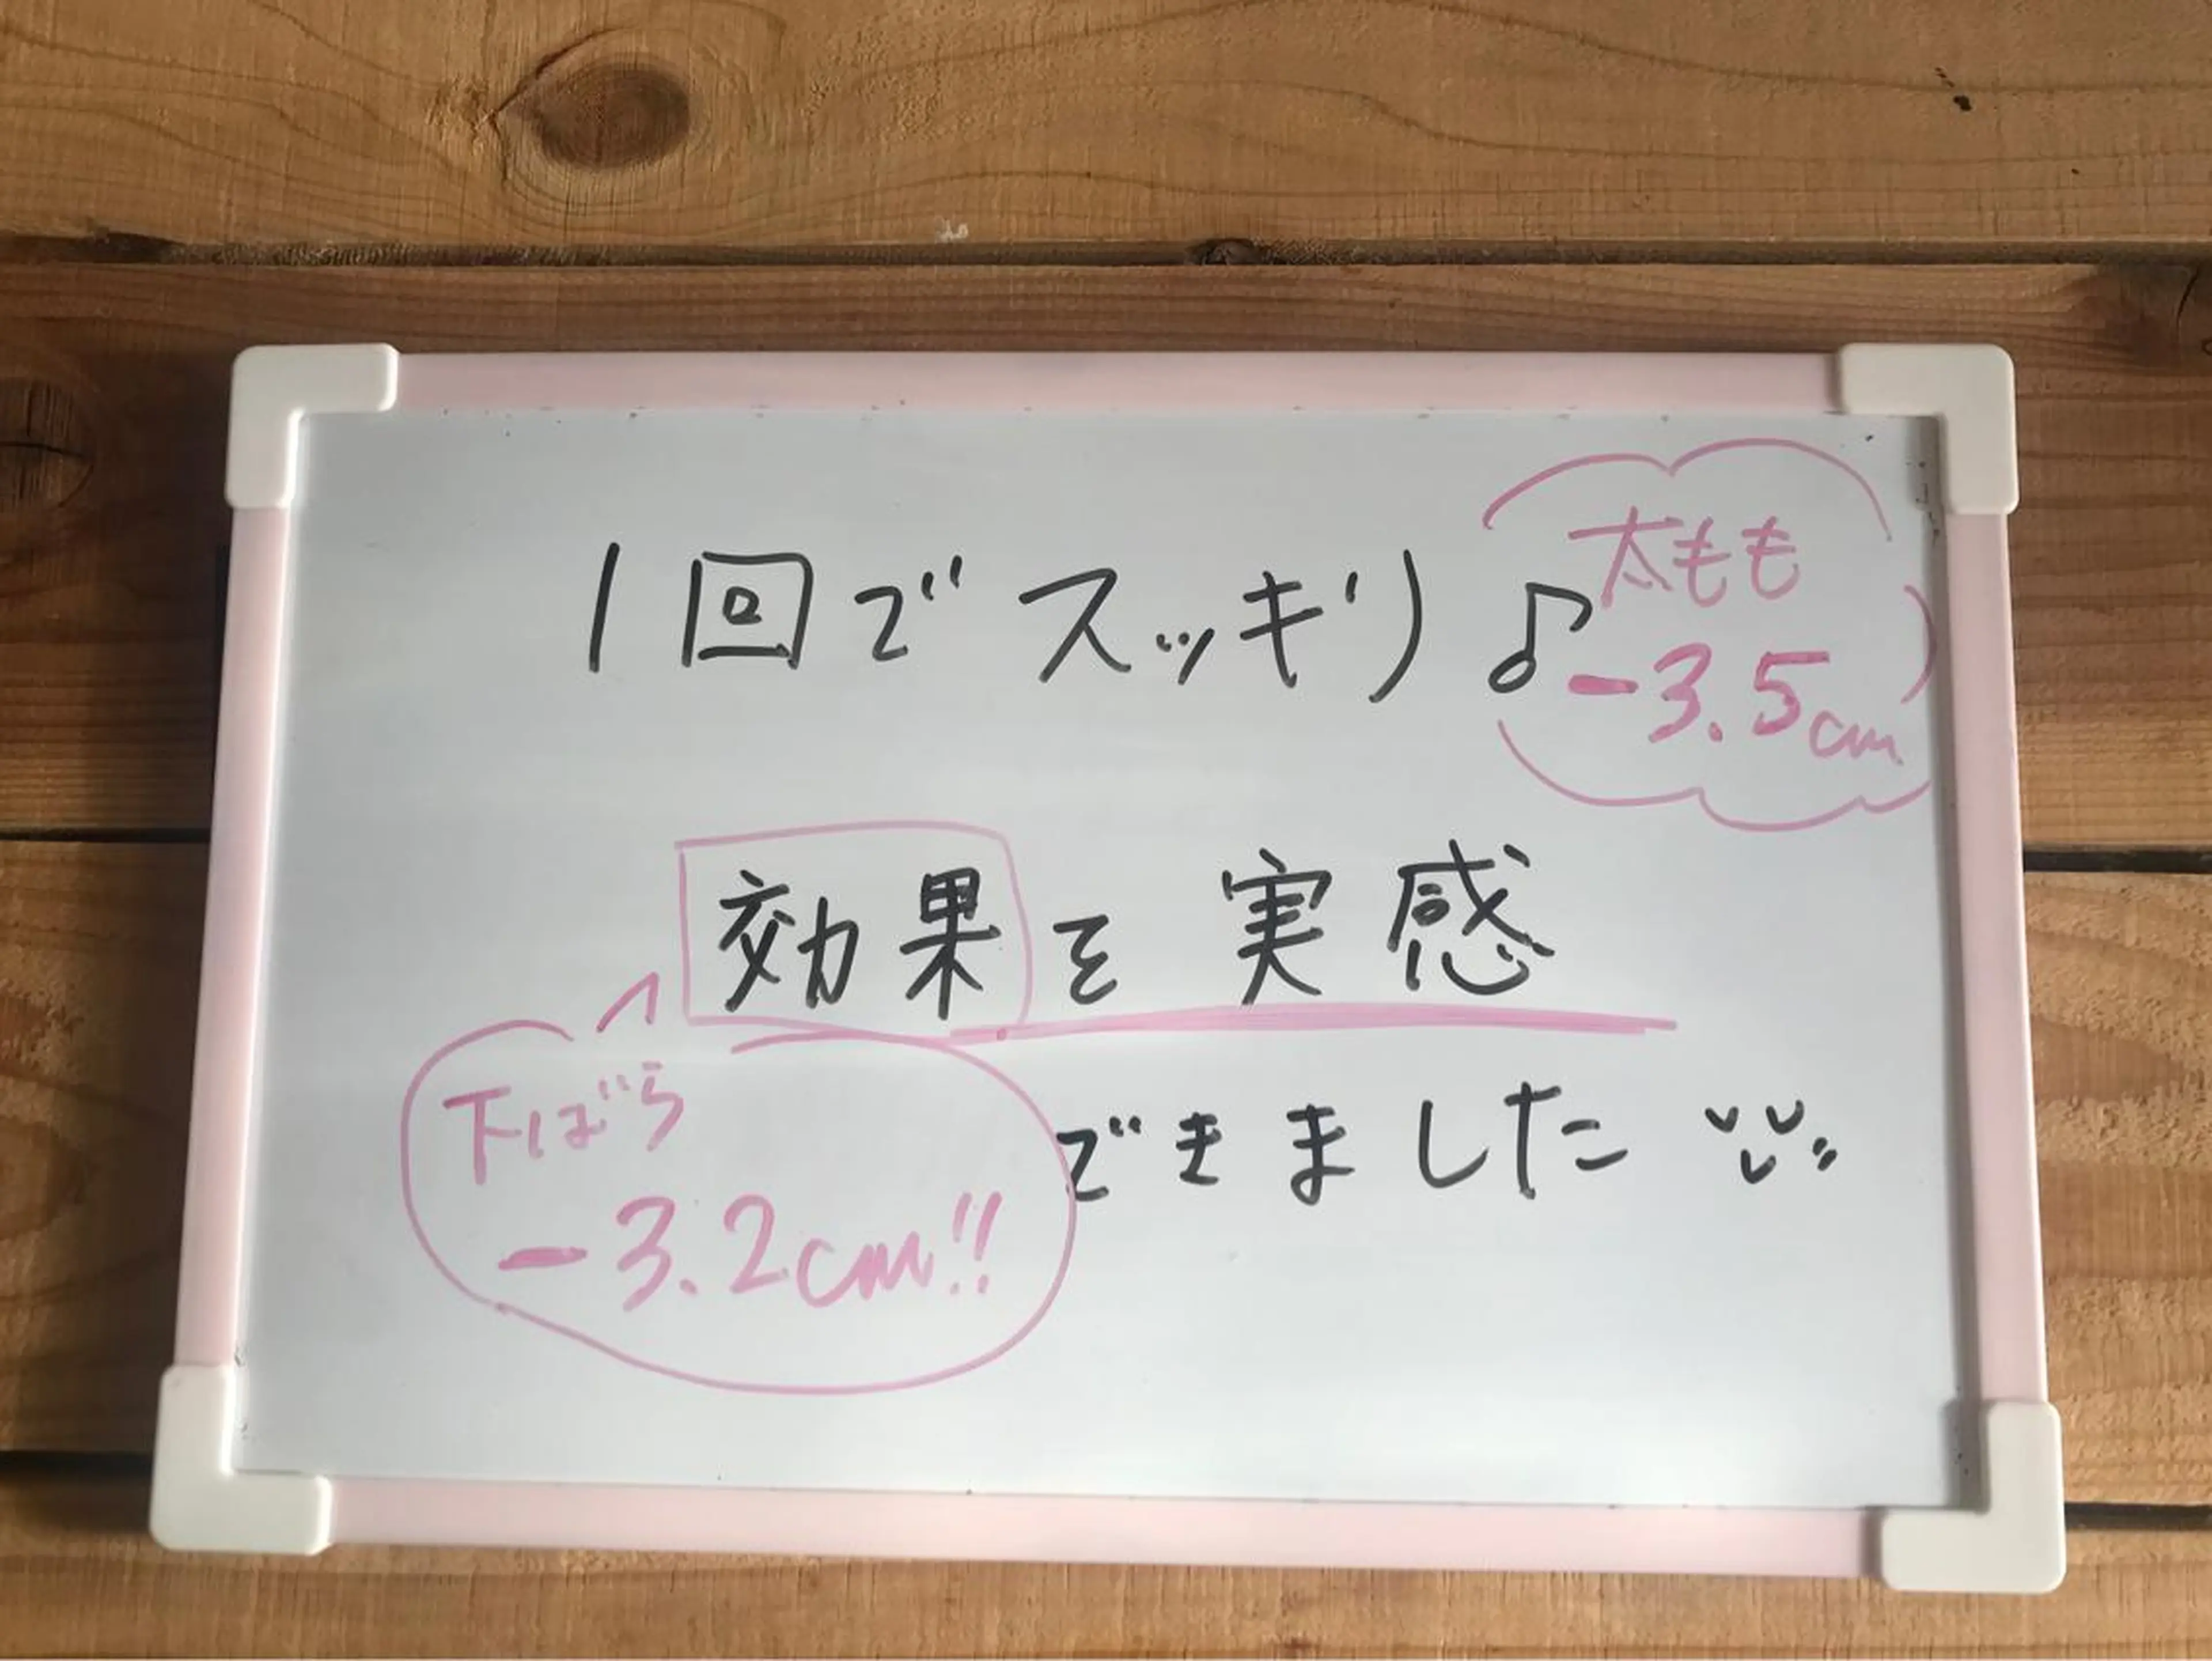 1回でスッキリ♪
太もも
-3.5cm
効果を実感
下ばら
-3.2cm!!
できました